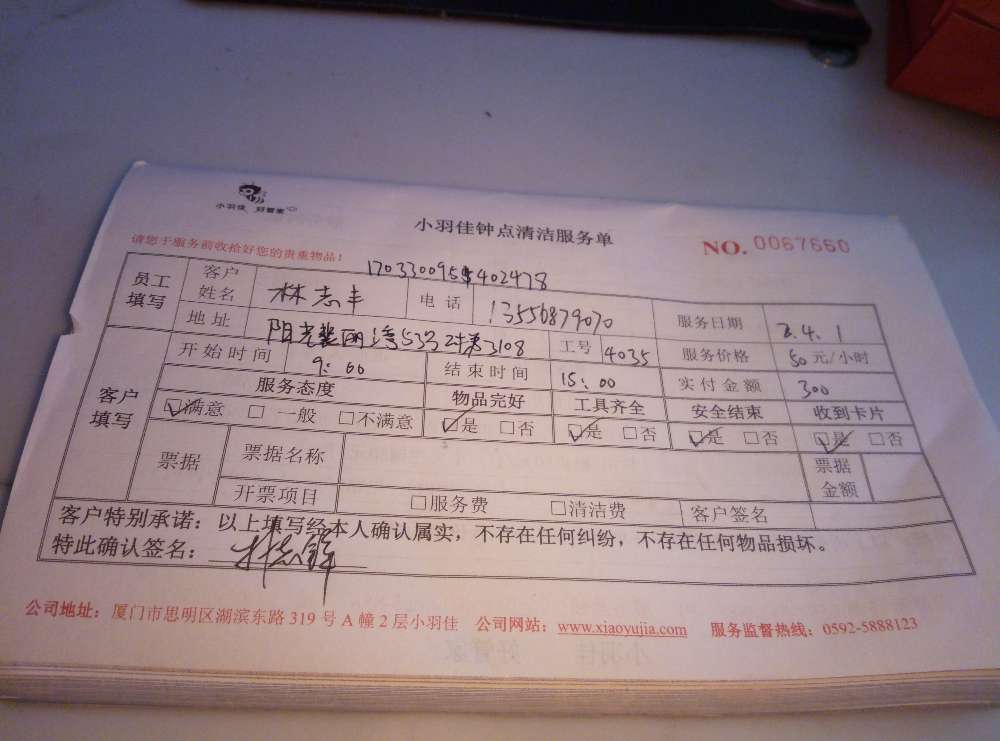 小羽佳 好管家
小羽佳钟点清洁服务单
NO. 0067660
请您于服务前收拾好您的贵重物品!
员工填写 客户姓名 林志丰 电话 13556879070 服务日期 2.4.1
地址 阳光 丽湾53号 3108 工号 4035 服务价格 50元/小时
客户填写 开始时间 9:00 结束时间 15:00 实付金额 300
服务态度 物品完好 工具齐全 安全结束 收到卡片
☑满意 □一般 □不满意 ☑是 □否 ☑是 □否 ☑是 □否 ☑是 □否
票据 票据名称 票据金额
开票项目 □服务费 □清洁费 客户签名
客户特别承诺：以上填写经本人确认属实，不存在任何纠纷，不存在任何物品损坏。
特此确认签名：林志锋
公司地址：厦门市思明区湖滨东路 319 号 A 幢 2 层小羽佳 公司网站：www.xiaoyujia.com 服务监督热线：0592-5888123